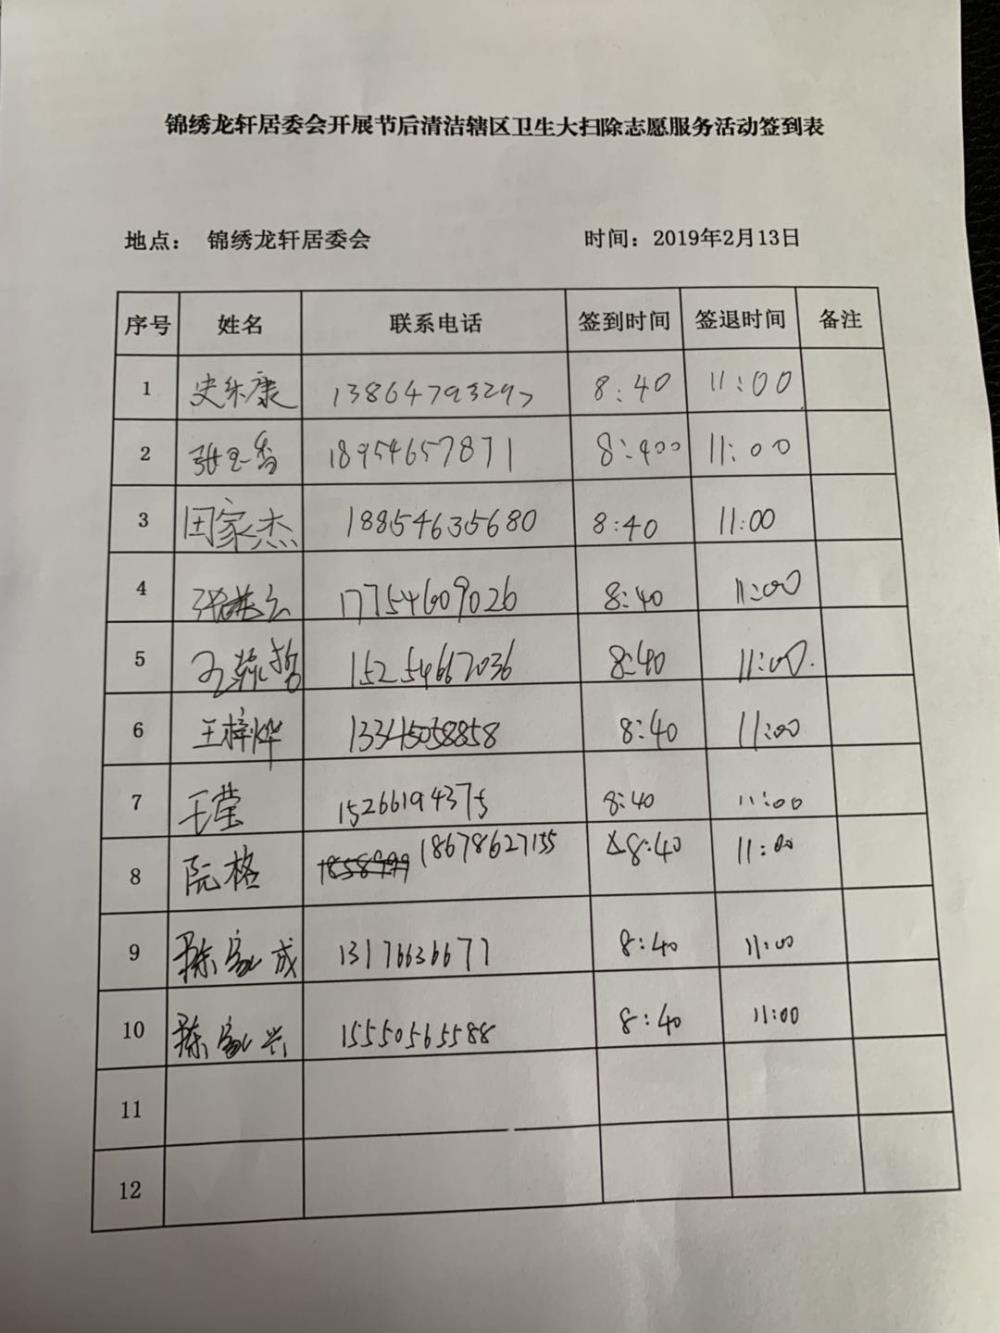 锦绣龙轩居委会开展节后清洁辖区卫生大扫除志愿服务活动签到表
地点： 锦绣龙轩居委会 时间：2019年2月13日
序号 姓名 联系电话 签到时间 签退时间 备注
1 史乐康 13864793297 8:40 11:00
2 张玉香 18954657871 8:400 11:00
3 田家杰 18854635680 8:40 11:00
4 17754609026 8:40 11:00
5 15254667036 8:40 11:00.
6 王梓烨 13345058858 8:40 11:00
7 王莹 15266194375 8:40 11:00
8 阮格 18678627155 8:40 11:00
9 陈家成 13176636677 8:40 11:00
10 陈家兴 15550565588 8:40 11:00
11
12